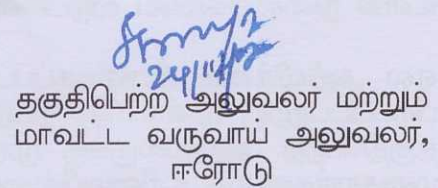 தகுதிபெற்ற அலுவலர் மற்றும்
மாவட்ட வருவாய் அலுவலர்,
ஈரோடு